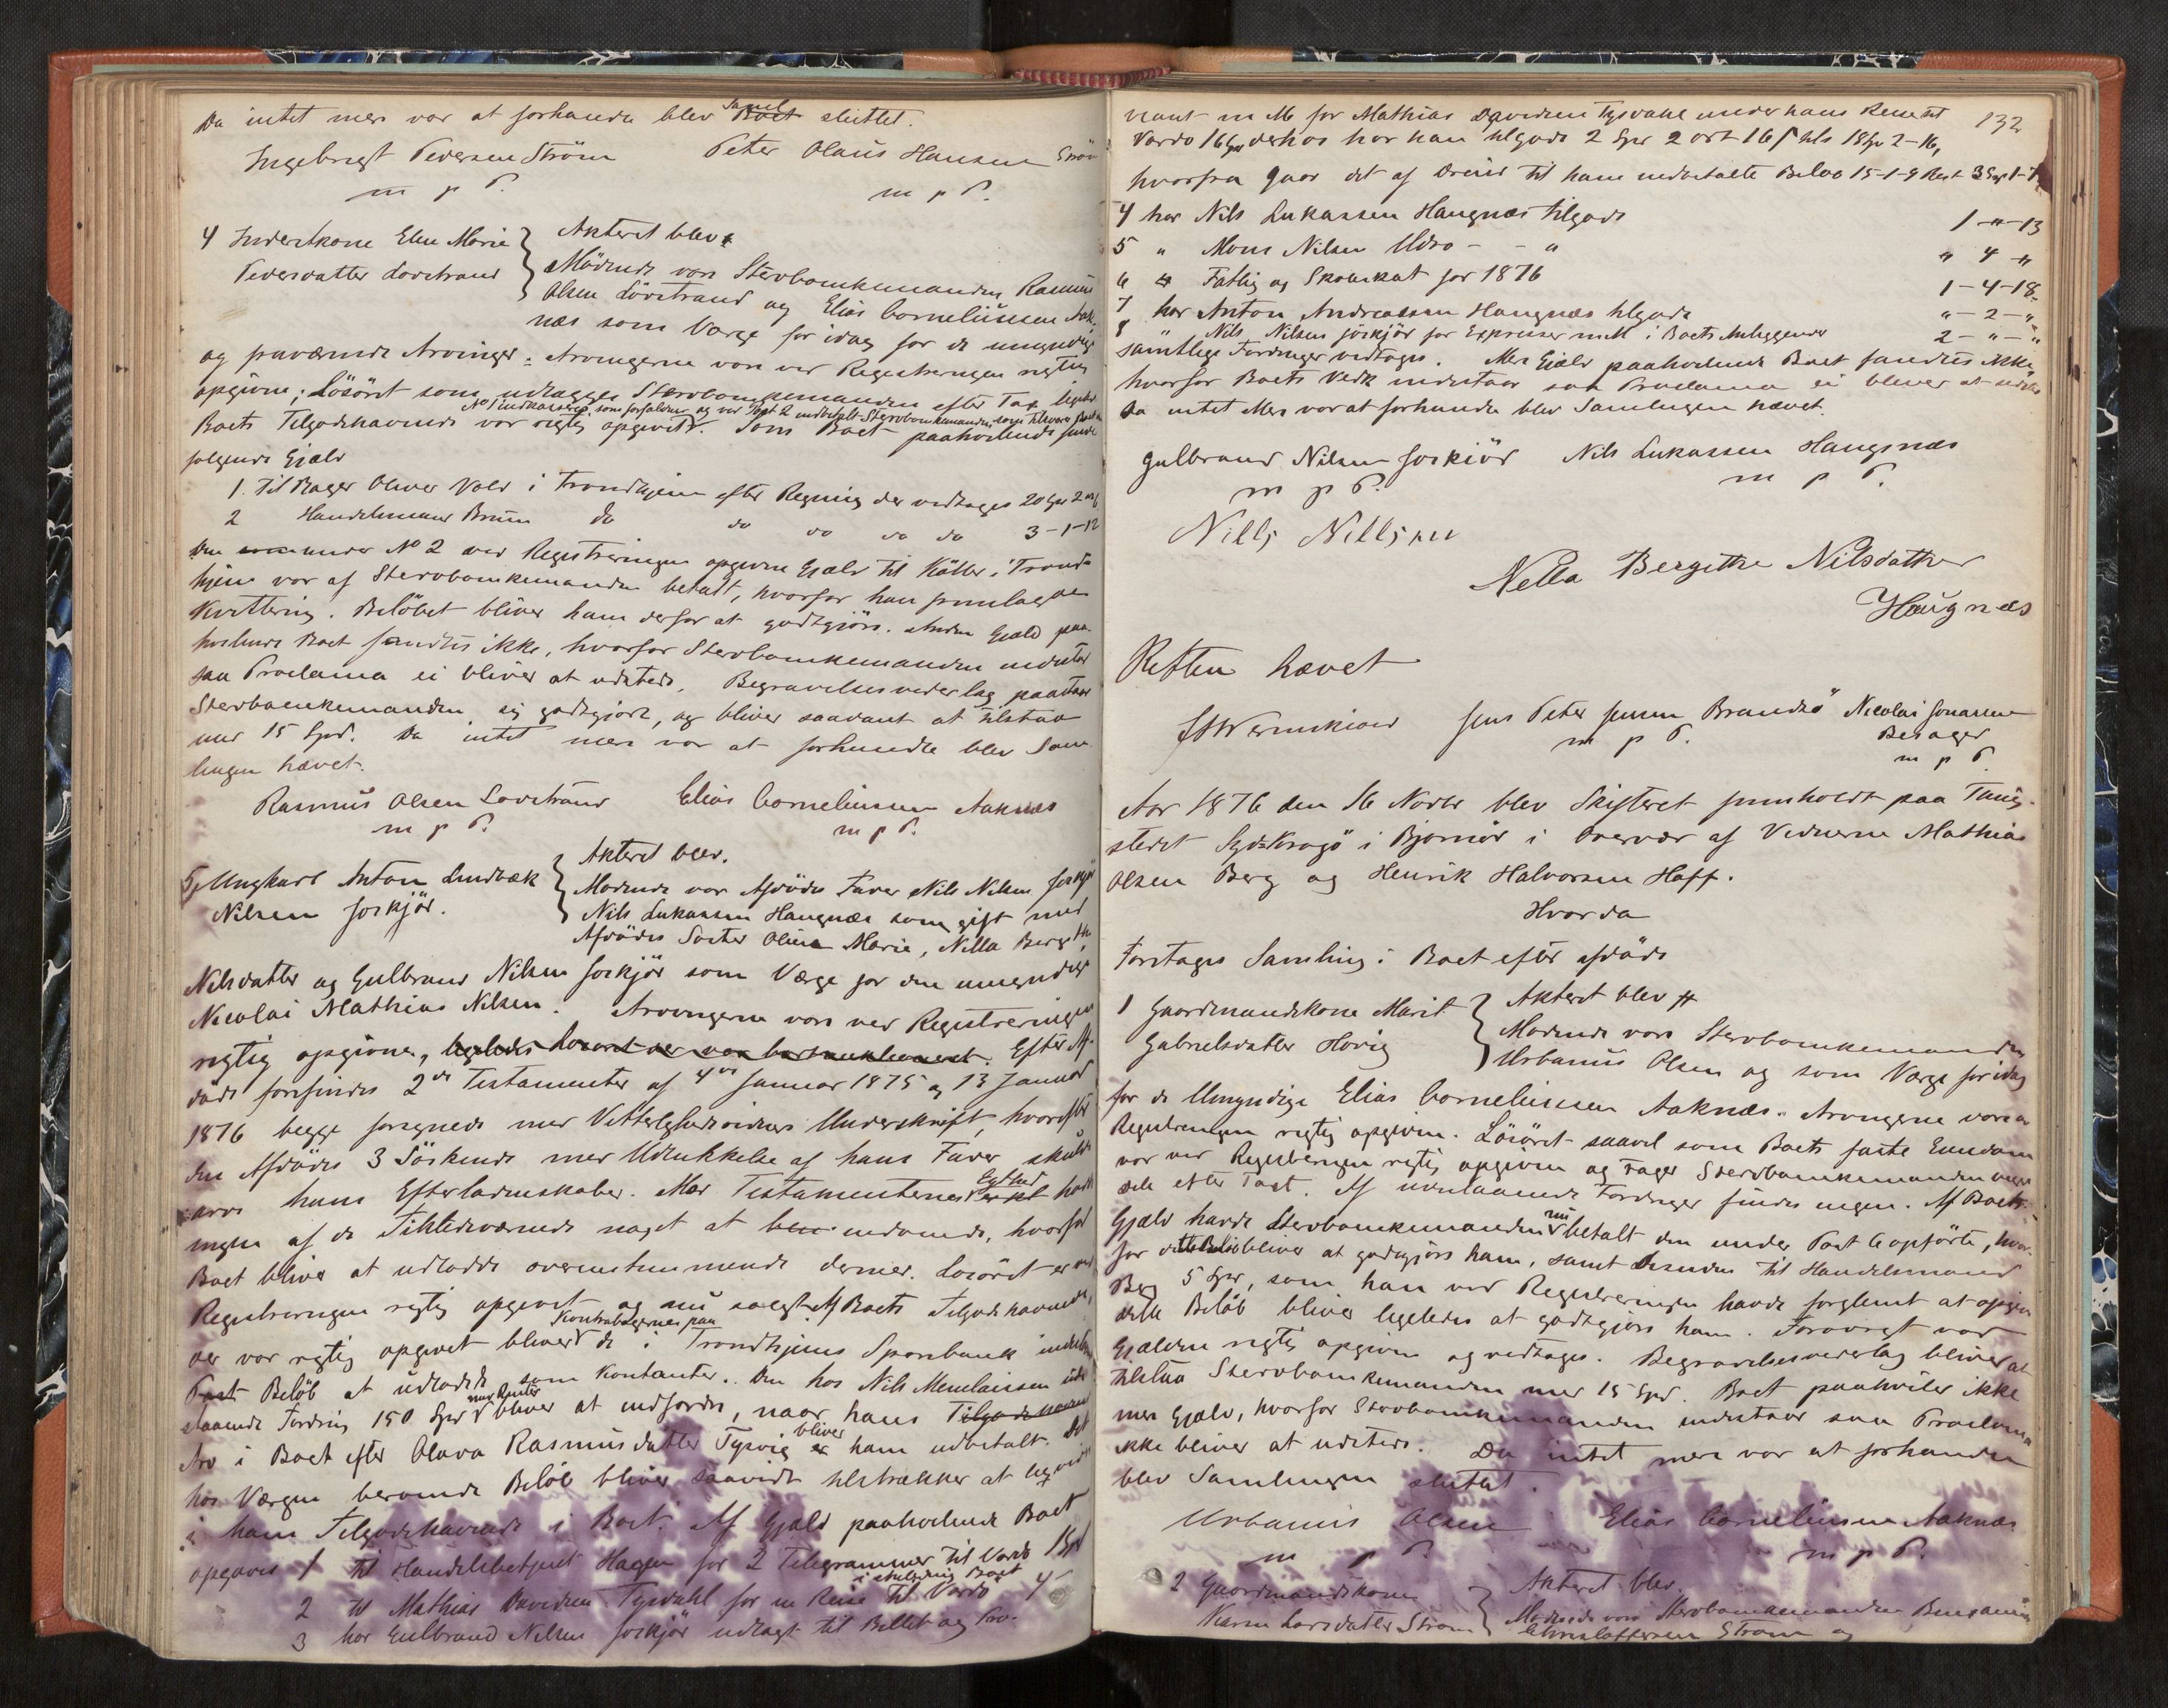 Da intet mere var at forhandle blev Saml sluttet.
Ingebrigt Pedersen Ström Peter Olaus Hansen Ström
m p P. m p P.
4 Inderstkone Elen Marie Akteret blev
Pedersdatter Lovstrand Mödende vare Stervboenkemanden Rasmus
Olsen Lövstrand og Elias Corneliussen Aak-
næs som Værge for idag for de umyndige
og fraværende Arvinger. Arvingerne vare ved Registreringen rigtig
opgivne; Lösöret som udlægges Stervboenkemanden efter Tax ligeledes
No 1 indkasseres som forfalden og ved Post 2 indbetalt Stervboenkemanden som tilsvarer Boet
Boets Tilgodehavende var rigtig opgivet. Som Boet paahvilende
følgende Gjæld
1. Til Bager Oliver Vold i Trondhjem efter Regning der vedtages 20 Spd 2 ort
2 Handelsmand Bruun do do do do do 3-1-12
Den under No 2 ved Registreringen opgivne Gjæld til Kötler i Trond-
hjem var af Stervboenkemanden betalt, hvorfor han fremlagde
Kvittering. Belöbet bliver ham derfor at godtgjöre. Anden Gjæld paa-
hvilende Boet fandtes ikke, hvorfor Stervboenkemanden indestod
saa Proclama ei bliver at udstede. Begravelsesvederlag paastod
Stervboenkemanden sig godtgjort, og bliver saadant at tilstaa
med 15 Spd. Da intet mere var at forhandle blev Sam-
lingen hævet.
Rasmus Olsen Lovstrand Elias Corneliussen Aaknæs
m p P. m p P.
5, Ungkarl Anton Lindbæk Akteret blev.
Nilsen Joskjör. Mödende var Afdödes Fader Nils Nilsen Joskjör
Nils Lukassen Haugnæs som gift med
Afdödes Søster Oline Marie, Nella Bergitte
Nilsdatter og Gulbrand Nilsen Joskjör som Værge for den umyndige
Nicolai Mathias Nilsen. Arvingerne vare ved Registreringen
rigtig opgivne, ligeledes Lösöret Efter Af-
döde forefindes 2de Testamenter af 4de Januar 1875 og 13 Januar
1876 begge forsynede med Vitterlighedsvidners Underskrift, hvorefter
den Afdödes 3 Söskende med Udelukkelse af hans Fader skulde
arve hans Efterladenskaber. Mod Testamenternes Gyldighed havde
ingen af de Tilstedeværende noget at indvende, hvorfor
Boet bliver at udlodde overensstemmende dermed. Lösöret er ved
Registreringen rigtig opgivet og nu solgt. Af Boets Tilgodehavende,
der var rigtig opgivet bliver de Kontrabögernes paa i Trondhjems Sparebank indestaaende
Belöb at udlodde som Kontanter. Den hos Nils Menelaissen ude-
staaende Fordring 150 Spd med Renter bliver at indfordre, naar hans Tilgodehavende
Arv i Boet efter Olava Rasmusdatter Tysvig bliver ham udbetalt. Det
hos Værgen beroende Belöb bliver saavidt tilstrækker at ligvidere
i hans Tilgodehavende i Boet. Af Gjæld paahvilende Boet
opgaves 1 til Handelsbetjent Hagen for 2 Telegrammer til Vardö 1 Spd
2 til Mathias Davidsen Tysdahl for en Reise i Anledning Boet til Vardö 4
3 har Gulbrand Nilsen Joskjör udlagt til Billet og Pro-
132
viant m M for Mathias Davidsen Tysdahl under hans Reise til
Vardö 16 Spd derhos har han tilgode 2 Spd 2 ort 16 s tils 18 Spd 2-16,
hvorfra gaar det af til ham indbetalte Belöb 15-1-9 Rest 3 Spd 1-7
4 har Nils Lukassen Haugnæs tilgode 1-"-13
5 " Mons Nilsen Udro - - " " 4 "
6 Fattig og Skoleskat for 1876 1-4-18
7 har Anton Andreassen Haugnæs tilgode "-2-"
8 " Nils Nilsen Joskjör for Expresser m M i Boets Anliggender 2-"-"
samtlige Fordringer vedtages. Mere Gjæld paahvilende Boet fandtes ikke,
hvorfor Boets Vedk indestaar saa Proclama ei bliver at udstede
Da intet Mere var at forhandle blev Samlingen hævet.
Gulbrand Nilsen Joskiör Nils Lukassen Haugnæs
m p P. m p P.
Nills Nillsen
Nella Bergitte Nilsdatter
Haugnæs
Retten hævet
Jens Peter Jensen Brandsö Nicolai Jonassen
m p P. Besager
m p P
Aar 1876 den 16 Novbr blev Skifteret fremholdt paa Thing-
stedet Syd-Krogö i Bjørnör i Overvær af Vidnerne Mathias
Olsen Berg og Henrik Halvorsen Haff.
Hvorda
Foretages Samling i Boet efter afdöde
1 Gaardmandskone Marit Akteret blev
Gabrielsdatter Hovig Mødende vare Stervboenkemanden
Urbanus Olsen og som Værge for idag
for de Umyndige Elias Corneliussen Aaknæs. Arvingerne vare ved
Registreringen rigtig opgivne. Lösöret saavel som Boets faste Eiendom
var ved Registreringen rigtig opgiven og tager Stervboenkemanden begge
dele efter Taxt. Af udestaaende Fordringer findes ingen. Af Boets
Gjæld havde Stervboenkemanden nu betalt den under Post 6 opførte, hvor-
for dette Belöb bliver at godtgjöre ham, samt desuden til Handelsmand
Berg 5 Spd, som han ved Registreringen havde forglemt at opgive
dette Belöb bliver ligeledes at godtgjöre ham. Forövrigt var
Gjælden rigtig opgiven og vedtages. Begravelsesvederlag bliver at
tilstaa Stervboenkemanden med 15 Spd. Boet paahviler ikke
mere Gjæld, hvorfor Stervboenkemanden indestaar saa Proclama
ikke bliver at udstede. Da intet mere var at forhandle
blev Samlingen sluttet.
Urbanus Olsen Elias Corneliussen Aaknæs
m p P. m p P.
2 Gaardmandskone Akteret blev.
Karen Larsdatter Strøm Mødende vare Stervboenkemanden Benjamin
Christoffersen Strøm og